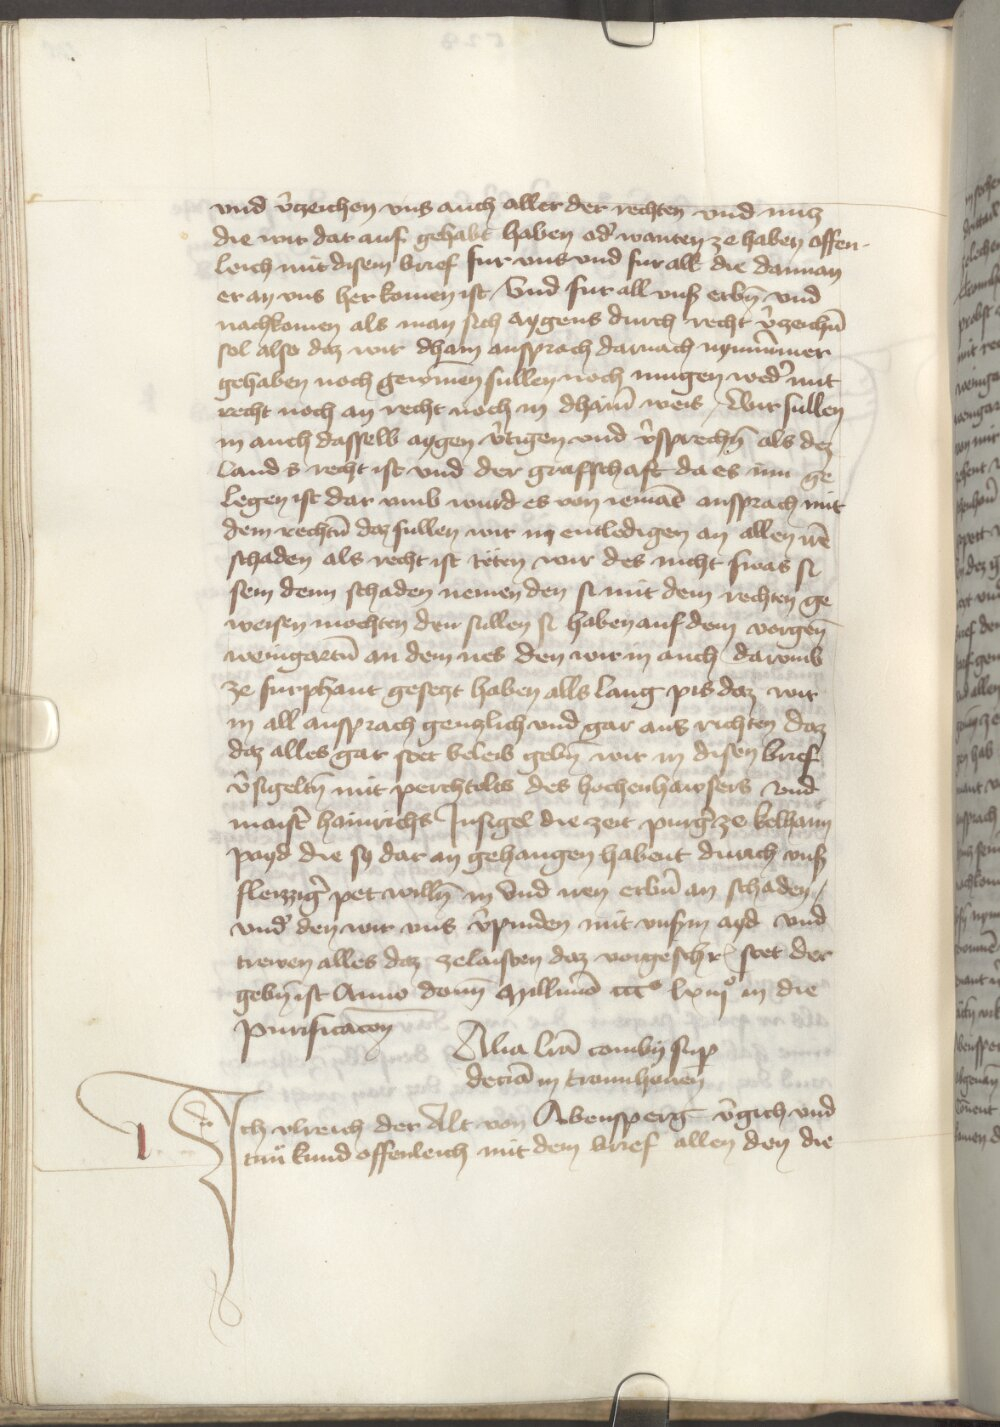 vnd v̂zeichen vns auch aller der rechten vnd nucz
die wir dar auf gehabt haben od̂ wanten ze haben offen-
leich mit disem brief fur vns vnd fur all die dannan
er an vns her komen ist / Vnd fur all vnß erbn̄ vnd
nachkomen als man sich aygens durch recht v̂zeichn̄
sol also daz wir dham ansprach darnach nymm̄mer
gehaben noch gewinnen sullen noch mugen wed̂ mit
recht noch an recht noch in dhain̄ weis / Wir sullen
in auch dasselb aygen v̂tigen vnd v̂sprechn̄ als dez
Lands recht ist vnd der graffschaft da es inn ge
legen ist dar vmb wurd es von iemāt ansprach mit
dem rechtn̄ daz sullen wir in entledigen an allen irē
schaden als recht ist teten wir des nicht swas si
sein denn schaden nemen den si mit dem rechten ge
weisen mochten den sullen si haben auf dem vorgen̄
weingartn̄ an dem nes den wir in auch darvmb
ze furphant gesetzt haben alls lang pis daz wir
in all ansprach genczlich vnd gar aus richten daz
daz alles gar stet beleib gebn̄ wir in disen brief
v̂sigeltn̄ mit perchtolts des hochenhawsers vnd
maist̂ hainrichs Insigel die zeit purĝ ze kelham
payd die sy dar an gehangen habent durich vnß
fleizziĝ pet willn̄ in vnd iren erbn̄ an schaden /
vnd̂ den wir vns v̂pinden mit vnsrm ayd vnd
trewen alles daz zelaisten daz vorgeschr stet der
gebn̄ ist Anno domī Millm̄o ccc° lxiii° in die
Purificacōn
Alia lrā comb̄ sup
deciā in tronnhouen̄
Ich vlreich der Alt von Abensperg v̂gich vnd
tuͤn kund offenleich mit dem brief allen den die